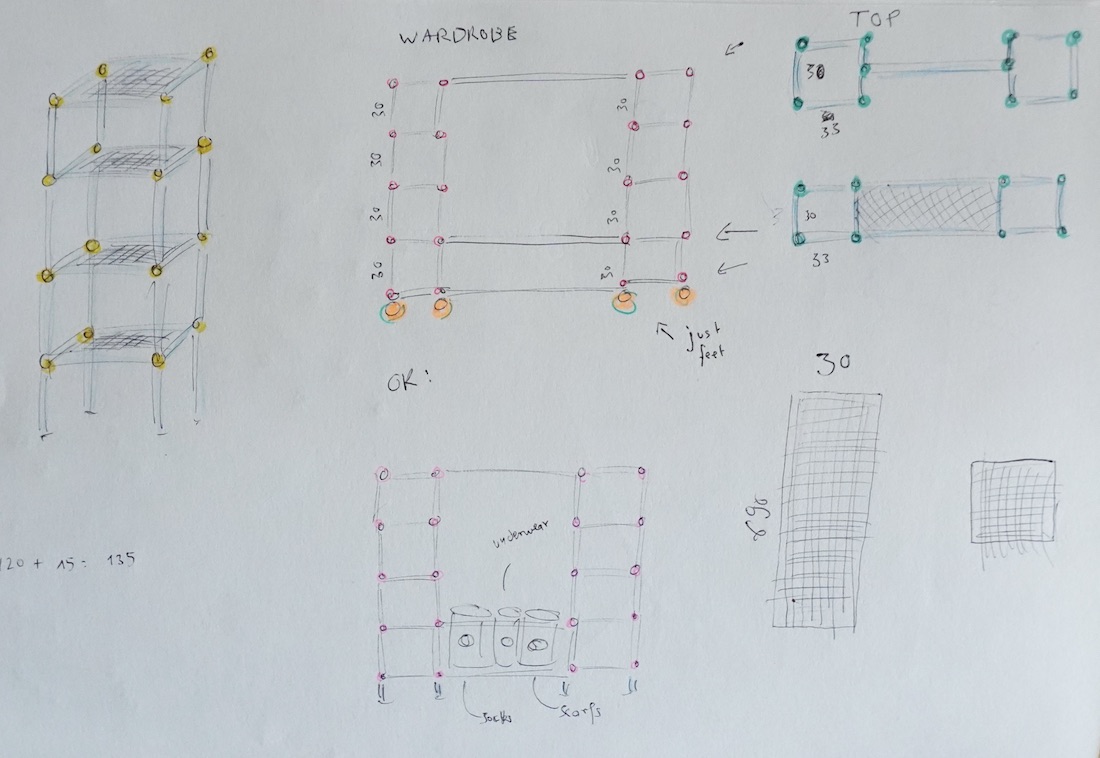 WARDROBE
TOP
30
30
30
30
30
30
30
30
30
33
30
33
just
feet
OR:
30
underwear
socks
scarfs
120 + 15 = 135